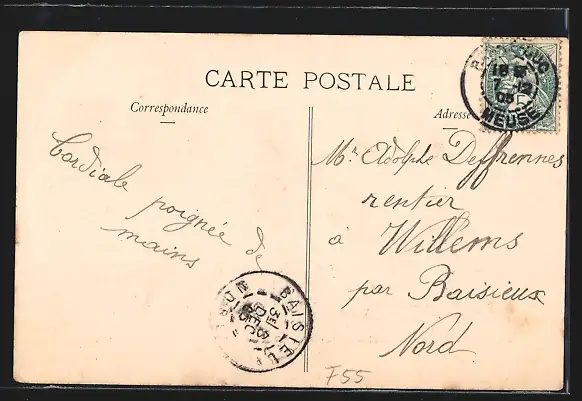 CARTE POSTALE
Correspondance
Adresse
Cordiale poignée de
mains
Mr Adolphe Deffrennes
rentier
à Willems
par Baisieux
Nord
MEUSE
7-12
05
BAISIEUX
NORD
F55